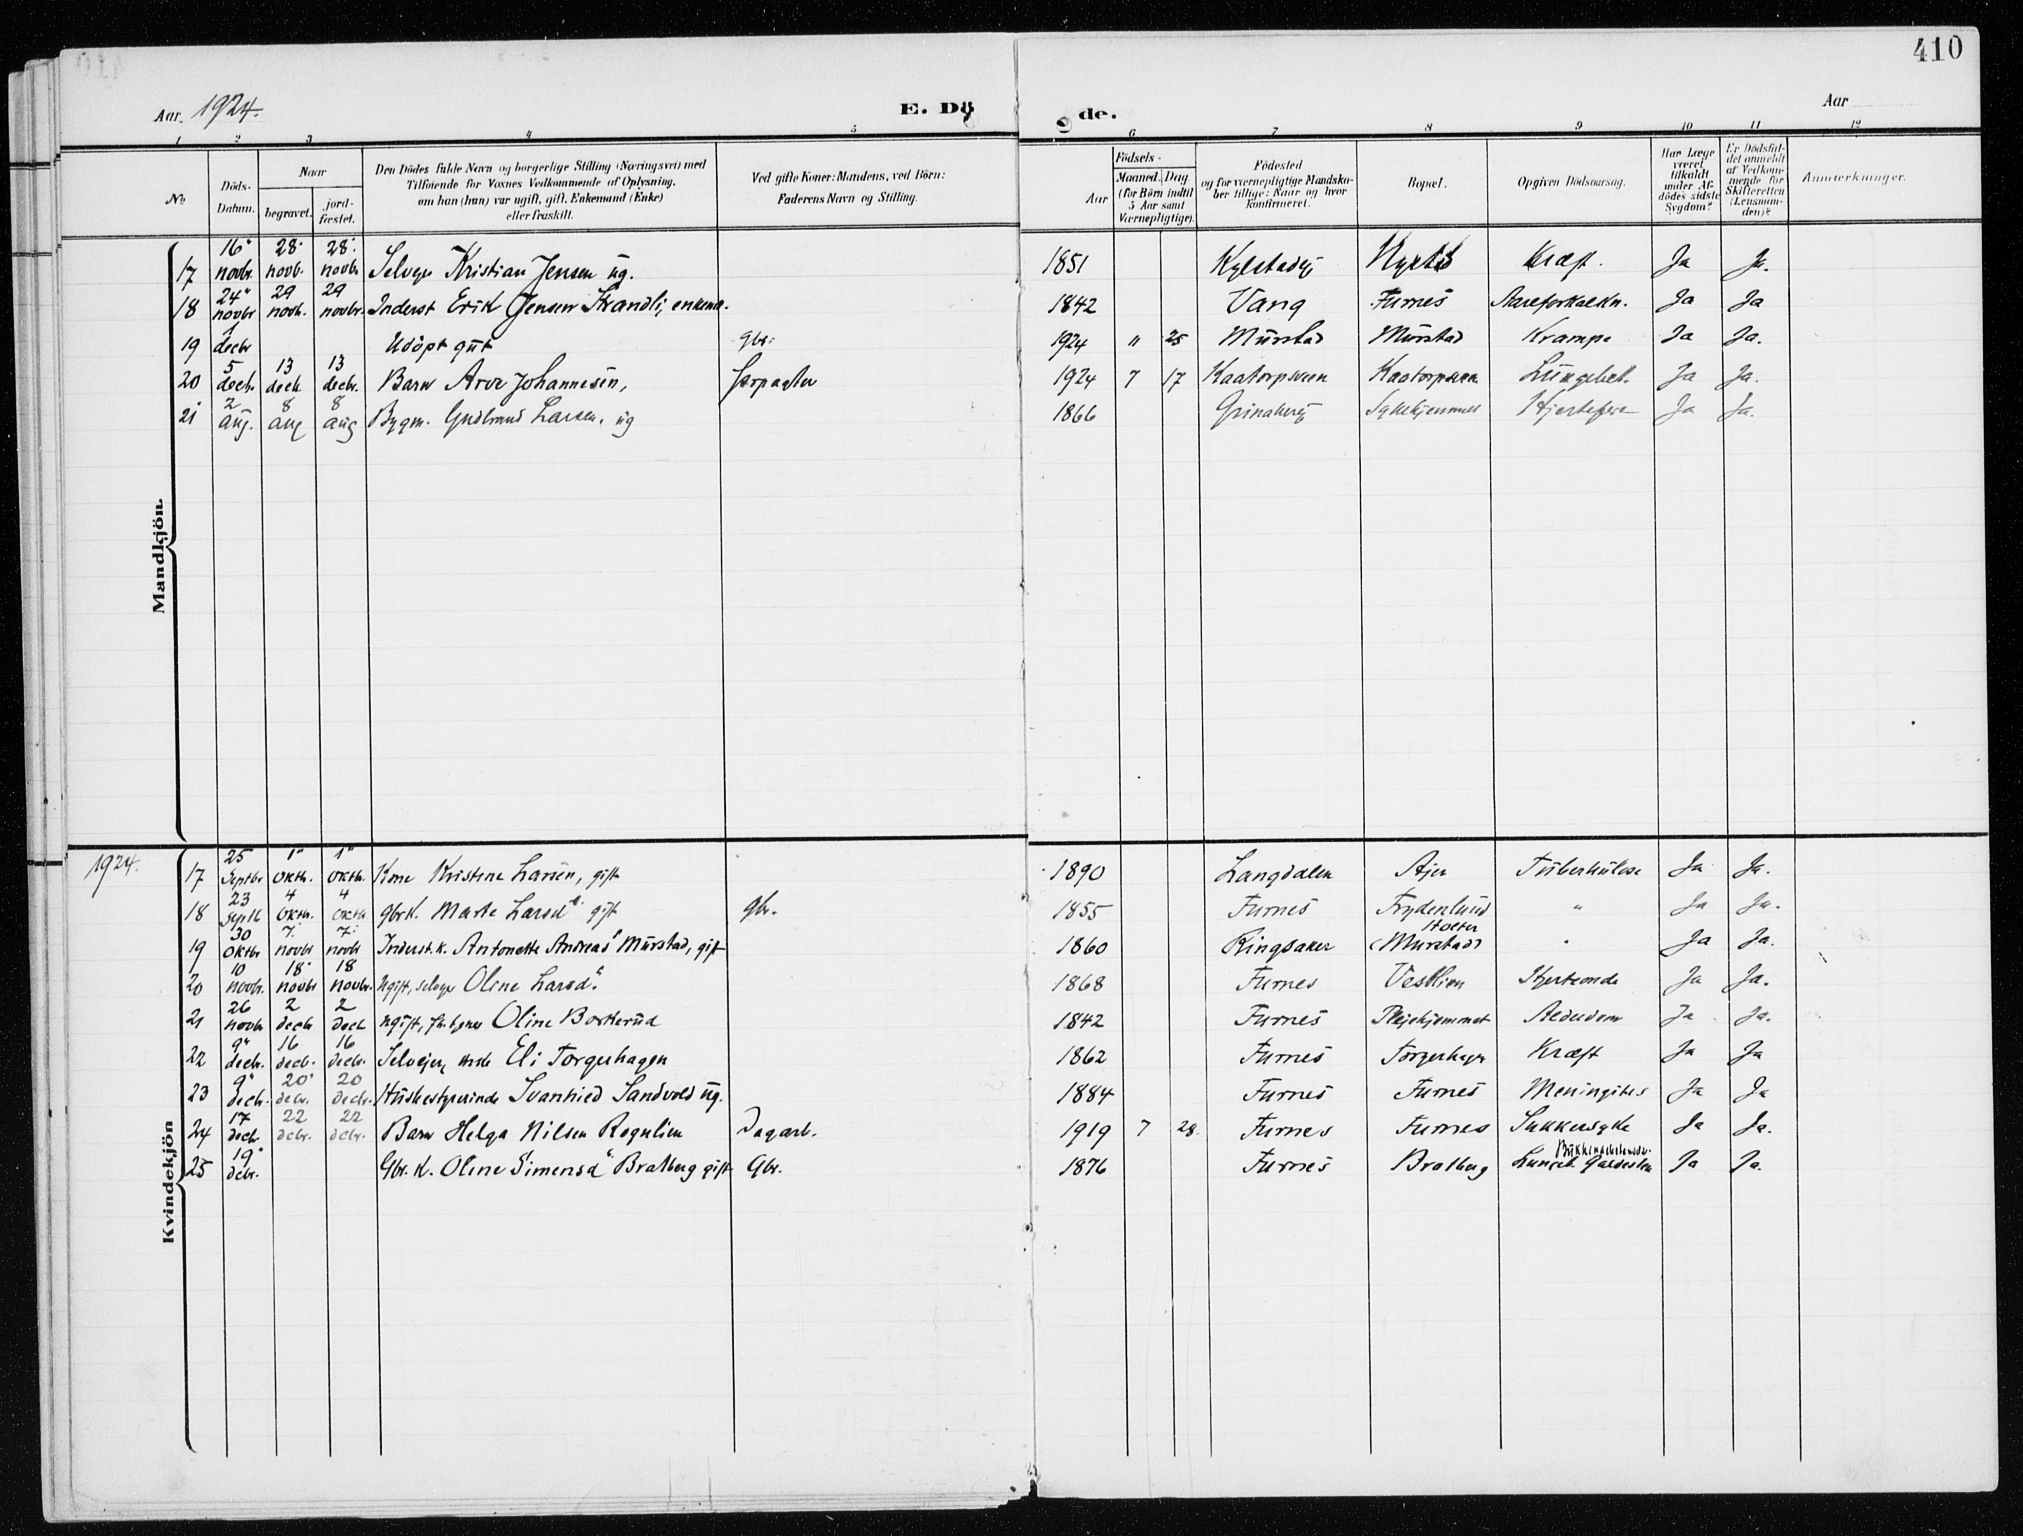 410
Aar. 1924.
E. Dö de.
Aar
1 2 3 4 5 6 7 8 9 10 11 12
No
Döds-Datum.
Naar
begravet.
jord-fæstet.
Den Dödes fulde Navn og borgerlige Stilling (Næringsvei) med
Tilföiende for Voxnes Vedkommende af Oplysning,
om han (hun) var ugift, gift, Enkemand (Enke)
eller fraskilt.
Ved gifte Koner: Mandens, ved Börn:
Faderens Navn og Stilling.
Födsels-
Aar
Maaned. Dag
(for Börn indtil
5 Aar samt
Værnepligtige).
Födested
og for værnepligtige Mandska-
ber tillige: Naar og hvor
Konfirmeret.
Bopæl.
Opgiven Dödsaarsag.
Har Læge
været
tilkaldt
under Af-
dödes sidste
Sygdom?
Er Dödsfal-
det anmeldt
af Vedkom-
mende for
Skifteretten
(Lensman-
den)?
Anmærkninger.
Mandkjön.
17 16 novbr 28 novb. 28 novbr Selveje Kristian Jensen ug. 1851 Kylstadej Kræft. Ja Ja.
18 24 novbr 29 novb. 29 novbr. Inderst Erik Jensen Strandli, enkem. 1842 Vang Furnes Aareforkalkn. Ja Ja
19 1 decbr Udöpt gut gbr: 1924 " 25 Murstad Murstad Krampe Ja Ja.
20 5 decb. 13 decb. 13 decbr. Barn Arve Johannesen, forpagter 1924 7 17 Kaatorpsveen Kaatorpsveen Lungebet. Ja Ja.
21 2 aug. 8 aug 8 aug Bygm. Gudbrand Larsen, ug 1866 Grinaberg Sykehjemmet Ja Ja.
1924.
Kvindekjön
17 25 Septbr 1 oktb. 1 oktb. Kone Kristine Larsen, gift 1890 Langdalen Ajer Tuberkulose Ja Ja.
18 23 Septb 4 oktb. 4 oktb gbrk. Marte Larsd gift gbr. 1855 Furnes Frydenlund " Ja Ja.
19 30 oktbr 7. novbr 7. novb Inderst.k. Antonette Andreasd Murstad, gift 1860 Ringsaker Stolter (Murstad) " Ja Ja.
20 10 novb. 18 novbr 18 novbr. Ugift, selveje Oline Larsd. 1868 Furnes Vestlien Hjerteonde Ja Ja.
21 26 novbr 2 decb 2 decb ugift, Oline Borkerud 1842 Furnes Plejehjemmet Alderdom Ja Ja.
22 9 decbr. 16 decb. 16 decbr. Selvejer, enke Eli Torgerhagen 1862 Furnes Torgerhagen Kræft Ja Ja
23 9 decb. 20 debr. 20 decbr. Husbestyrerinde Svanhied Sandvold ug. 1884 Furnes Furnes Meningites Ja Ja
24 17 decb 22 debr. 22 debr. Barn Helga Nilsen Rognlien Dagarb. 1919 7 28 Furnes Furnes Sukkersyke Ja Ja.
25 19 debr. Gbr. K. Oline Simensd Bratberg gift Gbr. 1876 Furnes Bratberg Galdesten Ja Ja.